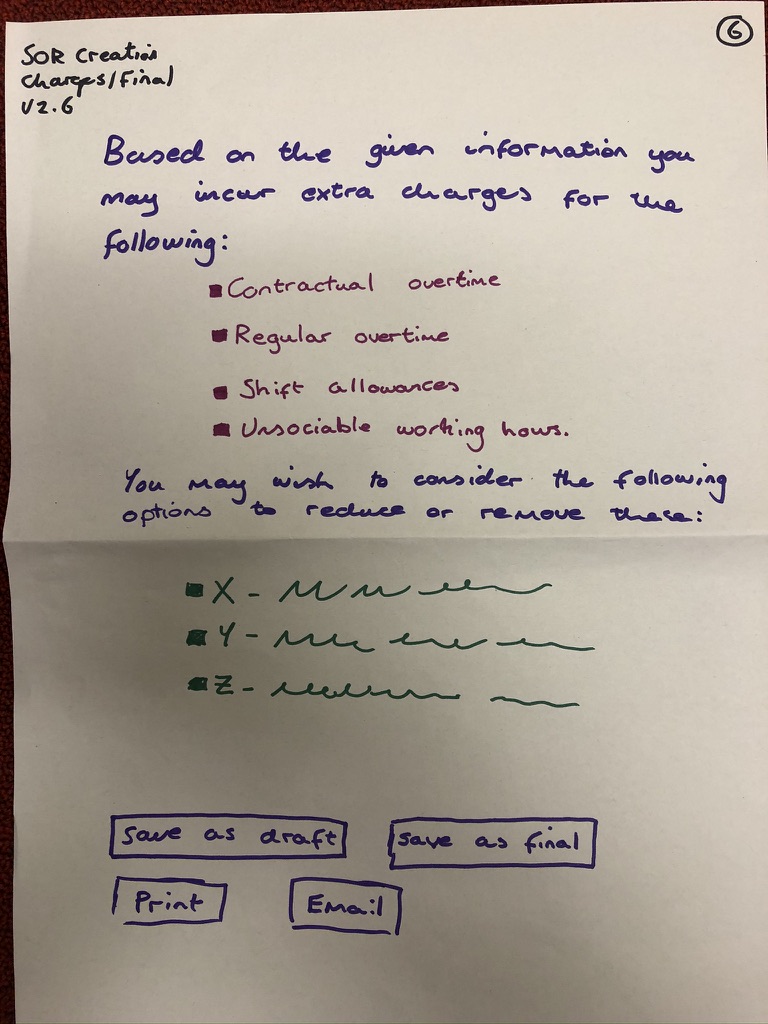 6
SOR Creation
Charges/Final
V2.6
Based on the given information you
may incur extra charges for the
following:
Contractual overtime
Regular overtime
Shift allowances
Unsociable working hours.
You may wish to consider the following
options to reduce or remove these:
X -
Y -
Z -
Save as draft
Save as final
Print
Email